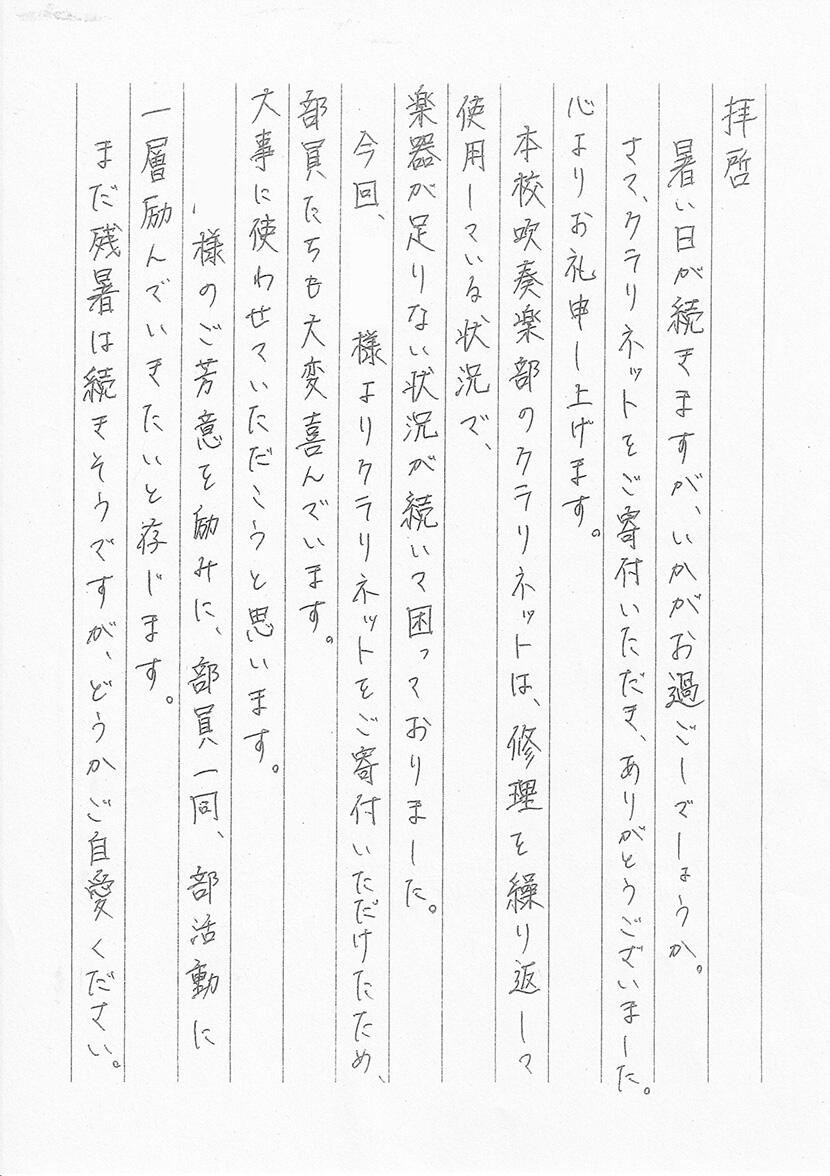 拝啓
暑い日が続きますが、いかがお過ごしでしょうか。
さて、クラリネットをご寄付いただき、ありがとうございました。
心よりお礼申し上げます。
本校吹奏楽部のクラリネットは、修理を繰り返して
使用している状況で、
楽器が足りない状況が続いて困っておりました。
今回、　　様よりクラリネットをご寄付いただけたため、
部員たちも大変喜んでいます。
大事に使わせていただこうと思います。
様のご芳意を励みに、部員一同、部活動に
一層励んでいきたいと存じます。
まだ残暑は続きそうですが、どうかご自愛ください。